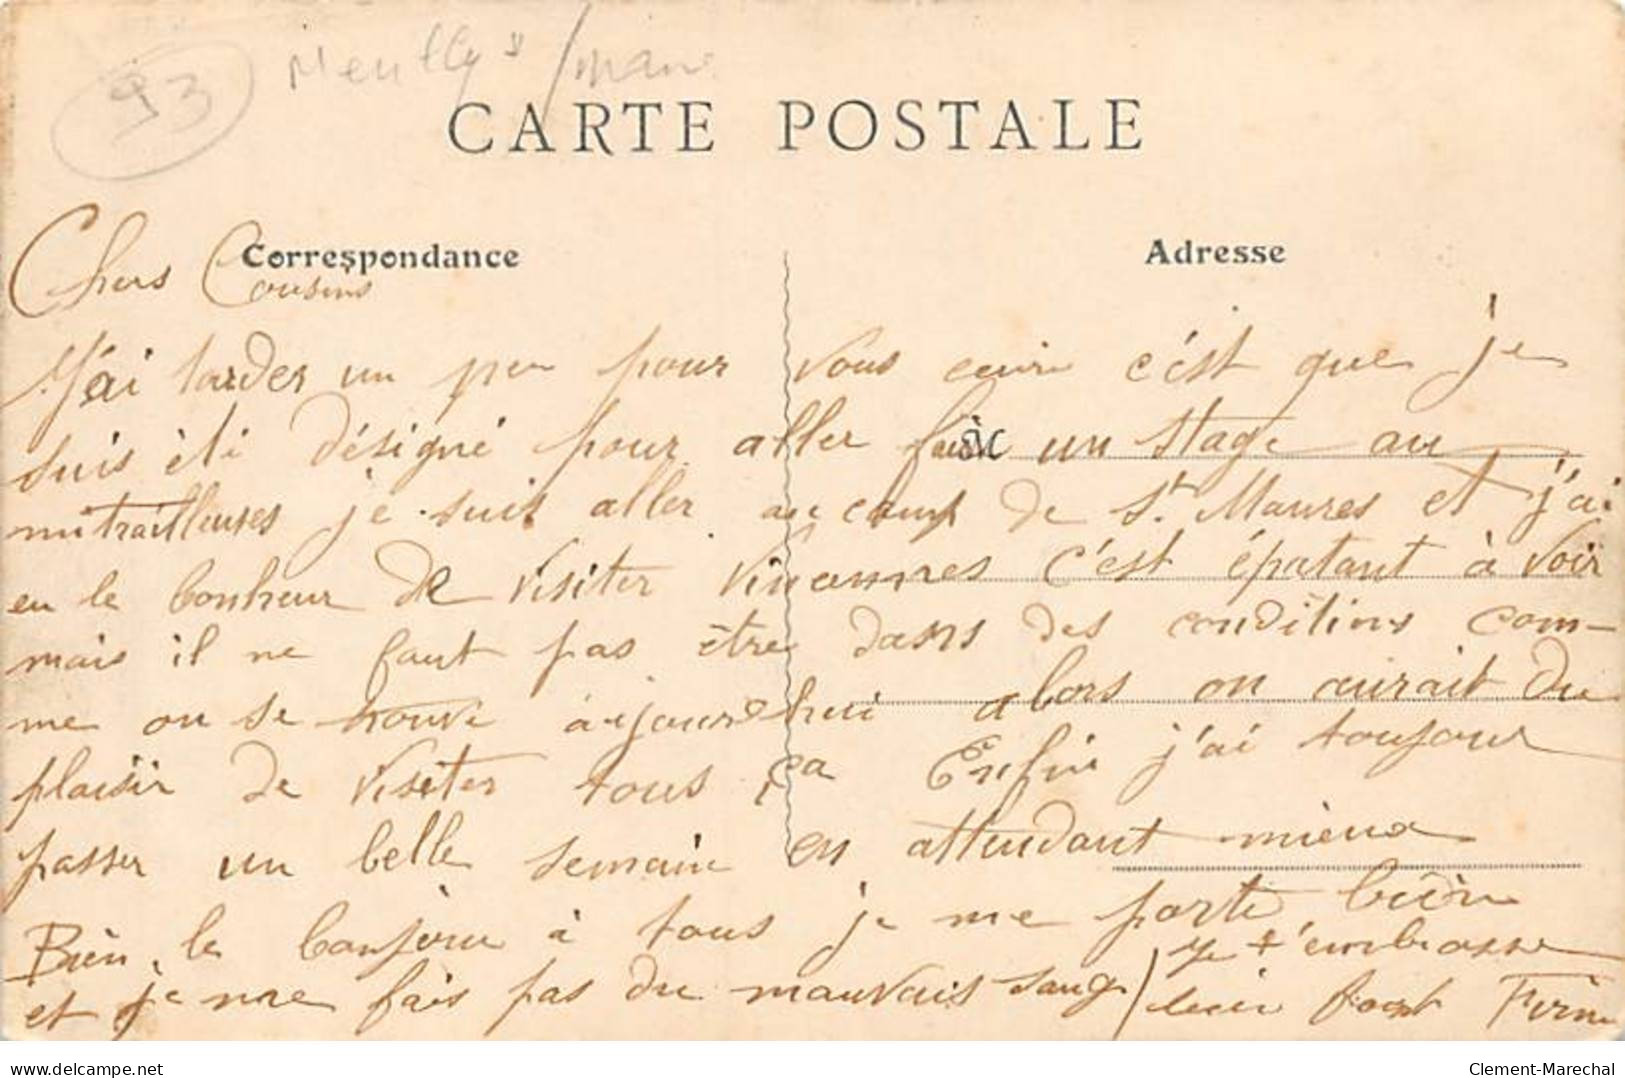 93 Neuilly s/marne
CARTE POSTALE
Correspondance
Adresse
Chers Cousins
J'ai tarder un peu pour vous ecrire c'est que je
suis èté désigné pour aller faire un stage au
mitrailleuses je suis aller au camp de St. Maures et j'ai
eu le bonheur de visiter Vincennes c'est épatant à voir
mais il ne faut pas être dans des conditions com-
me on se trouve aujourd'hui alors on aurait du
plaisir de visiter tous ça Enfin j'ai toujours
passer un belle semaine en attendant mieux
Bien le bonjour à tous je me porte bien
et je me fais pas du mauvais sang je t'embrasse
bien fort
delcampe.net
Clement-Marechal